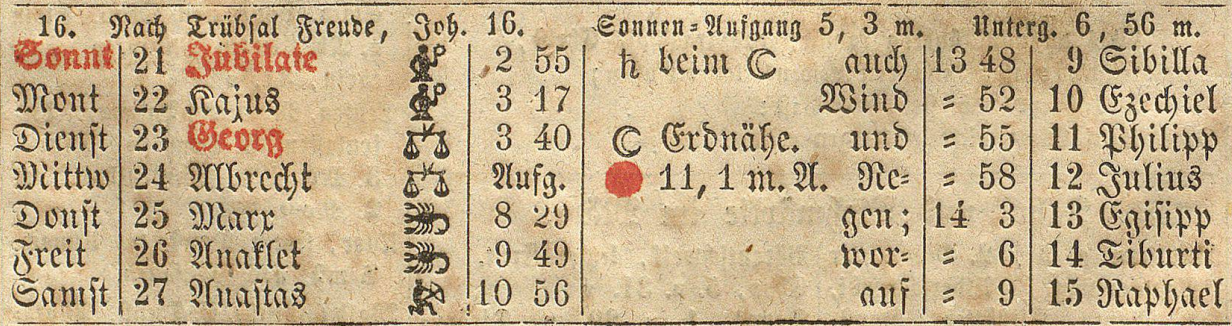 16. Nach Trübsal Freude, Joh. 16. Sonnen=Aufgang 5, 3 m. Unterg. 6, 56 m.
Sonnt 21 Jubilate ♍ 2 55 ♄ beim ☾ auch 13 48 9 Sibilla
Mont 22 Kajus ♍ 3 17 Wind = 52 10 Ezechiel
Dienst 23 Georg ♎ 3 40 ☾ Erdnähe. und = 55 11 Philipp
Mittw 24 Albrecht ♎ Aufg. 11, 1 m. A. Re= = 58 12 Julius
Donst 25 Marx ♏ 8 29 gen; 14 3 13 Egisipp
Freit 26 Anaklet ♏ 9 49 wor= = 6 14 Tiburti
Samst 27 Anastas ♐ 10 56 auf = 9 15 Raphael